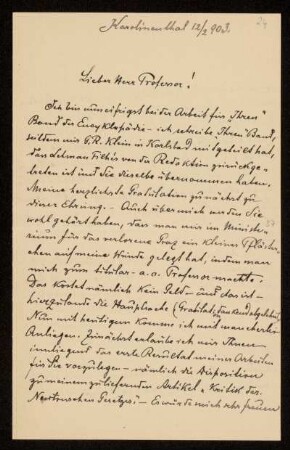 Karolinenthal 12/2 903.
Lieber Herr Professor!
Ich bin nun eifrigst bei der Arbeit für „Ihren"
Band der Encyklopädie – ich schreibe „Ihren" Band,
seitdem mir G. R. Klein in Karlsbad mitgeteilt hat,
dass Lehmann Filhés von der Redaktion zurückge-
treten ist und Sie dieselbe übernommen haben.
Meine herzlichste Gratulation zunächst zu
dieser Ehrung. – Auch über mich werden Sie
wohl gehört haben, dass man mir im Ministe-
rium für das verlorene Prag ein kleines Pfläster-
chen auf meine Wunde gelegt hat, indem man
mich zum titular – a. o. Professor machte.
Das kostet nämlich kein Geld – und das ist
hierzulande die Hauptsache
Nun mit heutigem komme ich mit mancherlei
Anliegen. Zunächst erlaube ich mir Ihnen
inliegend das erste Resultat meiner Arbeiten
für Sie vorzulegen – nämlich die Disposition
zu meinem zu liefernden Artikel „Kritik des
Newtonschen Gesetzes". – Es würde mich sehr freuen